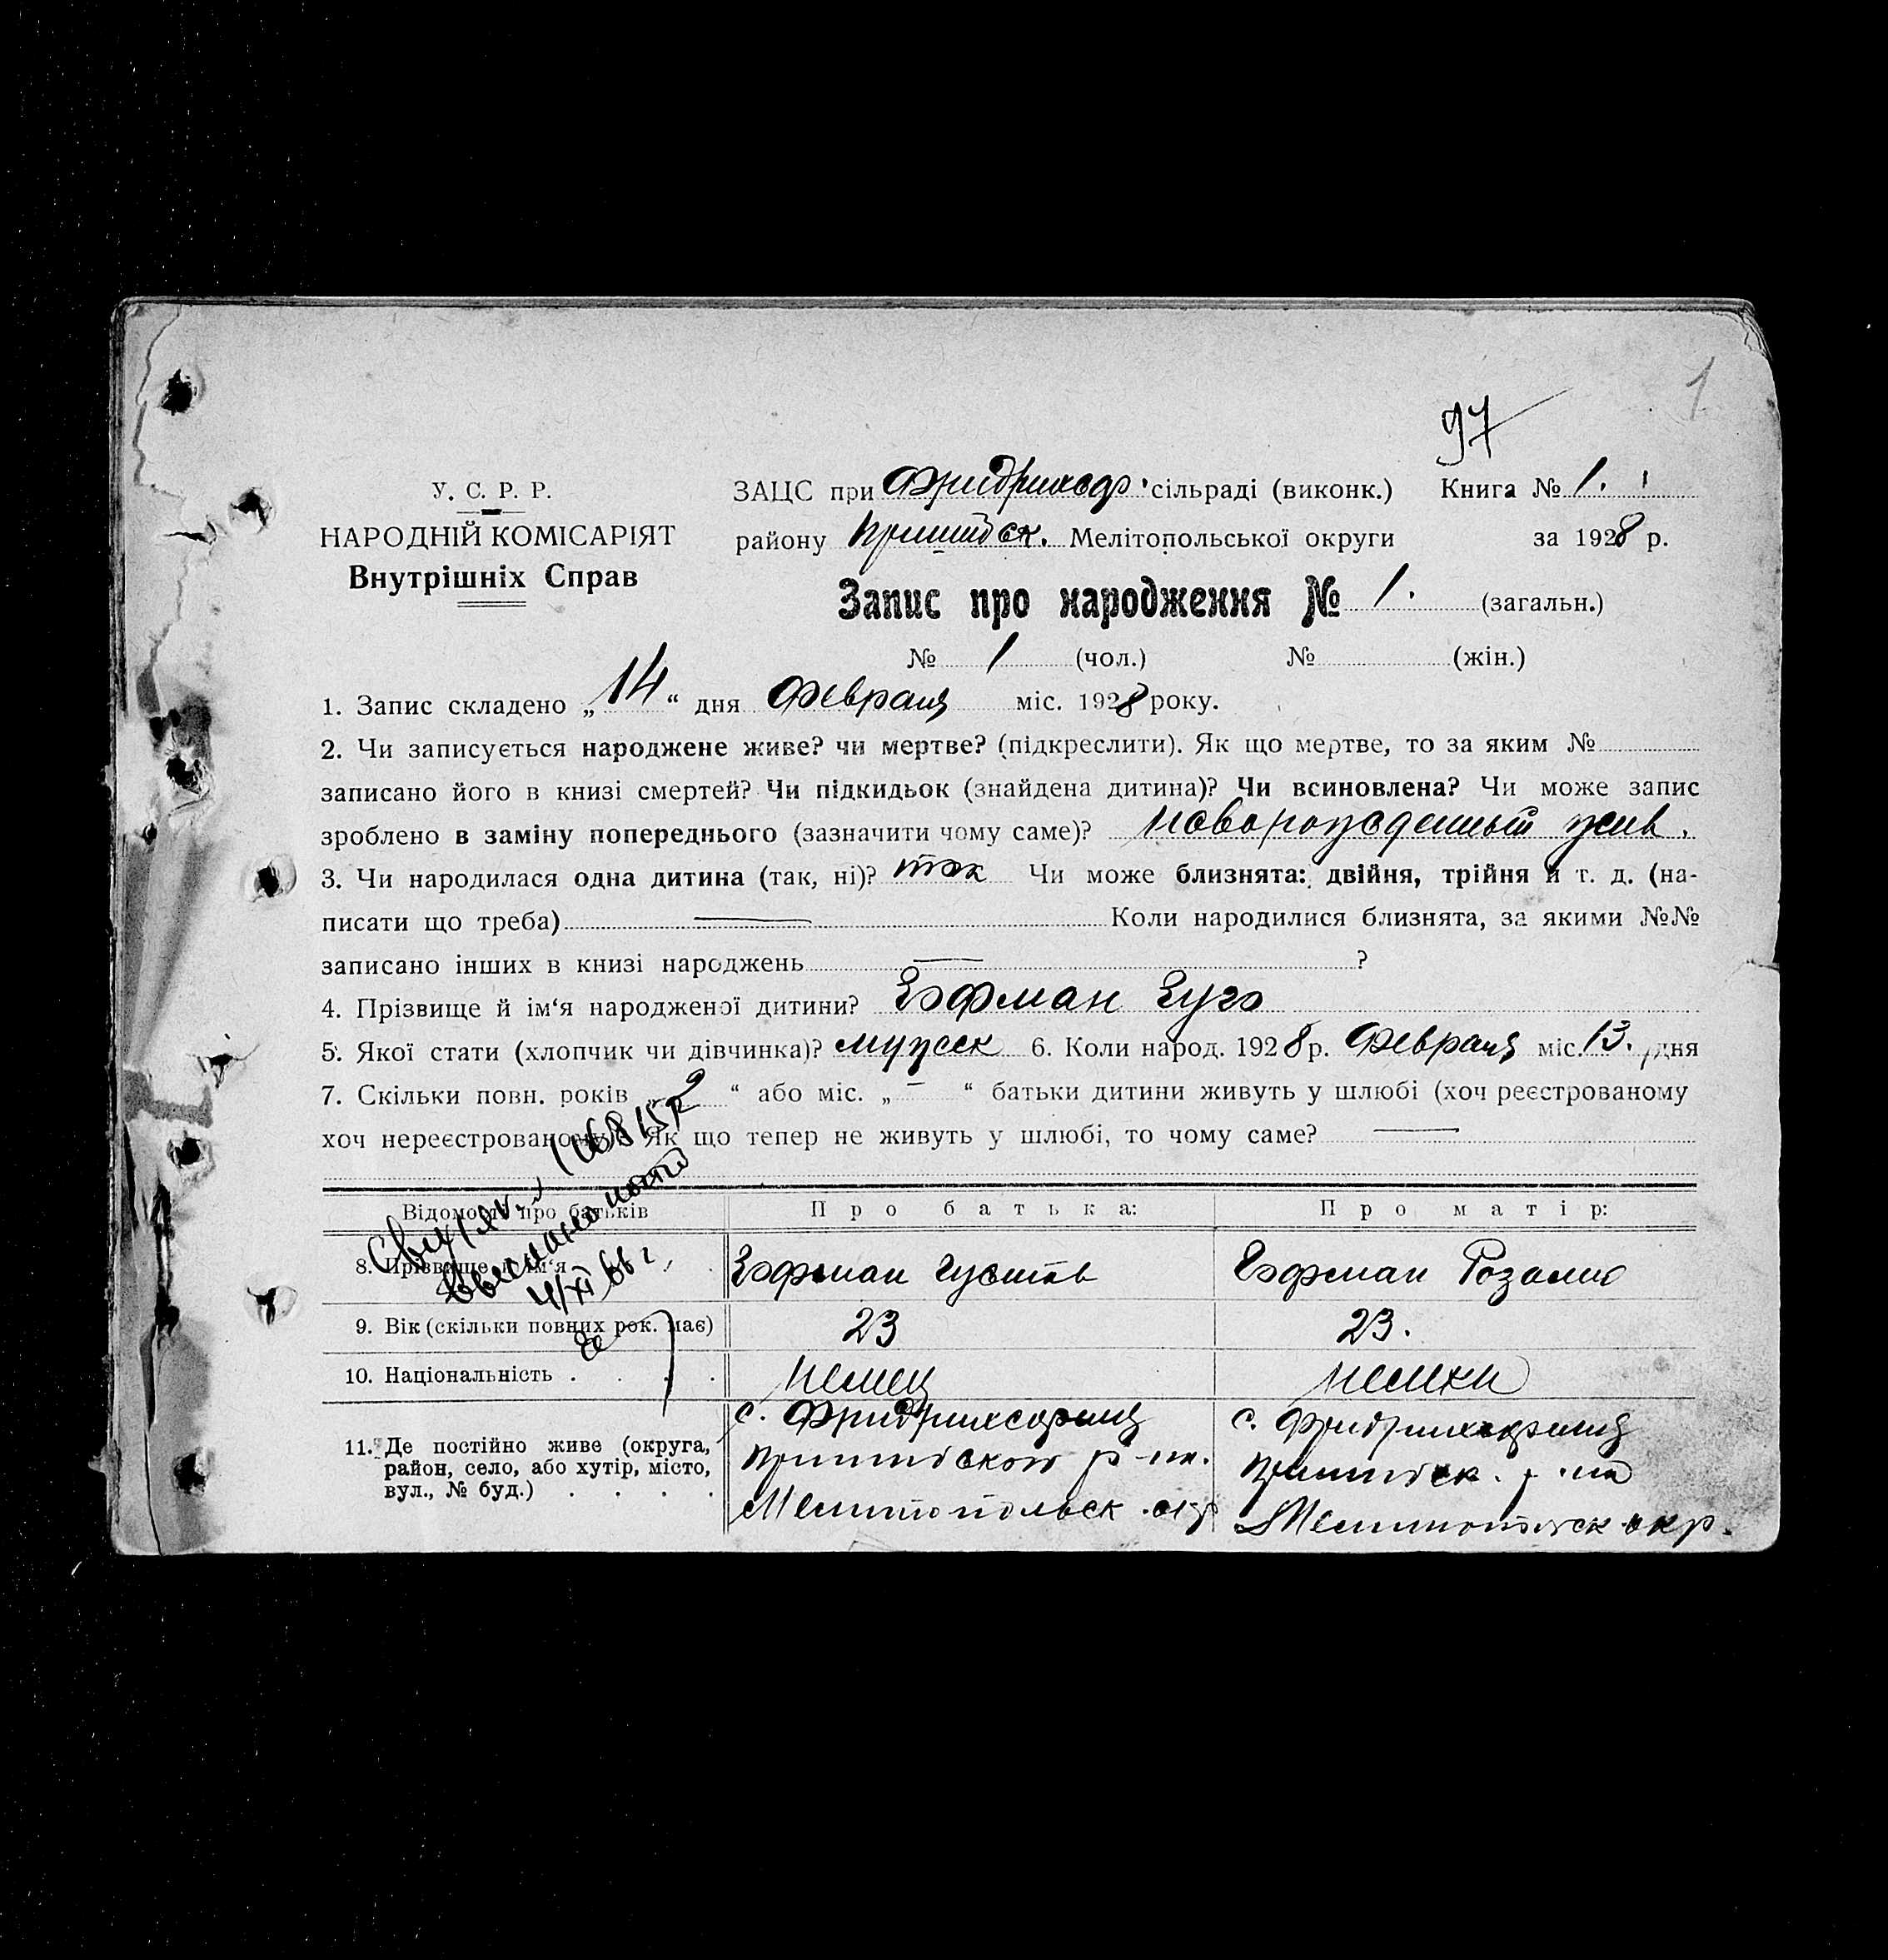 1
97
У. С. Р. Р.
НАРОДНІЙ КОМІСАРІЯТ
Внутрішніх Справ
ЗАЦС при Фридрихсф. сільраді (виконк.) Книга № 1.
району Пришибск. Мелітопольської округи за 1928 р.
Запис про народження № 1. (загальн.)
№ 1 (чол.) № (жін.)
1. Запис складено „14“ дня Февраля міс. 1928 року.
2. Чи записується народжене живе? чи мертве? (підкреслити). Як що мертве, то за яким №
записано його в книзі смертей? Чи підкидьок (знайдена дитина)? Чи всиновлена? Чи може запис
зроблено в заміну попереднього (зазначити чому саме)? Новорожденный жив.
3. Чи народилася одна дитина (так, ні)? так Чи може близнята: двійня, трійня й т. д. (на-
писати що треба) Коли народилися близнята, за якими №№
записано інших в книзі народжень ?
4. Прізвище й ім‘я народженої дитини? Гофман Гуго
5. Якої стати (хлопчик чи дівчинка)? мужск 6. Коли народ. 1928 р. Февраля міс. 13. дня
7. Скільки повн. років „2“ або міс. „–“ батьки дитини живуть у шлюбі (хоч реєстрованому
хоч нереєстрованому)? Як що тепер не живуть у шлюбі, то чому саме? —
Відомості про батьків Про батька: Про матір:
8. Прізвище й ім‘я Гофман Густав Гофман Розалия
4/XI 66 г
9. Вік (скільки повних рок. має) 23 23.
10. Національність . . . . Немец Немкa
11. Де постійно живе (округа, район, село, або хутір, місто, вул., № буд.) . . . .
с. Фридрихсфельд Пришибского р-на. Мелитопольск. окр
с. Фридрихсфельд Пришибск. р-на Мелитопольск. окр.